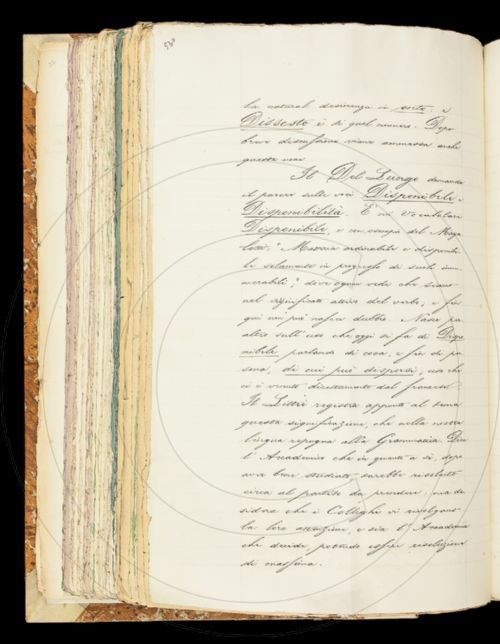 530
la natural desinenza in esto: e
Dissesto è di quel numero. Dopo
breve discussione viene ammessa anche
questa voce.
Il Del Lungo domanda
il parere sulle voci Disponibile e
Disponibilità. È nei Vocabolari
Disponibile, e con esempio del Maga
lotti: "Materia ordinabile e disponibi
le solamente in progresso di secoli innu
merabili"; dove ognun vede che siamo
nel significato attivo del verbo; e fin
qui non può nascer dubbio. Nasce per
altro sull'uso che oggi si fa di Dispo
nibile parlando di cosa, e fin di per
sona, di cui può disporsi; uso che
ci è venuto direttamente dal francese.
Il Littré registra appunto al tema
questa significazione, che nella nostra
lingua repugna alla Grammatica. Dice
l'Accademico che in quanto a sé, dopo
aver bene studiato sarebbe risoluto
circa al partito da prendere: ma de
sidera che i Colleghi vi rivolgano
la loro attenzione, e sia l'Accademia
che decida, potendo essere risoluzione
di massima.